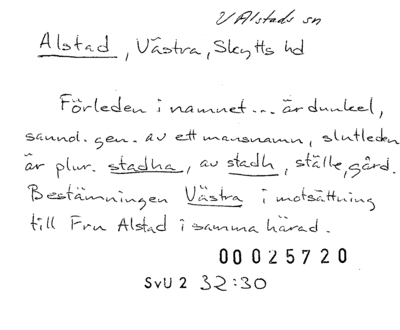 V Alstads sn
Alstad, Västra, Skytts hd
Förleden i namnet... är dunkel,
sannol. gen. av ett mansnamn, slutleden
är plur. stadha, av stadh, ställe, gård.
Bestämningen Västra i motsättning
till Fru Alstad i samma härad.
00025720
SvU 2 32:30